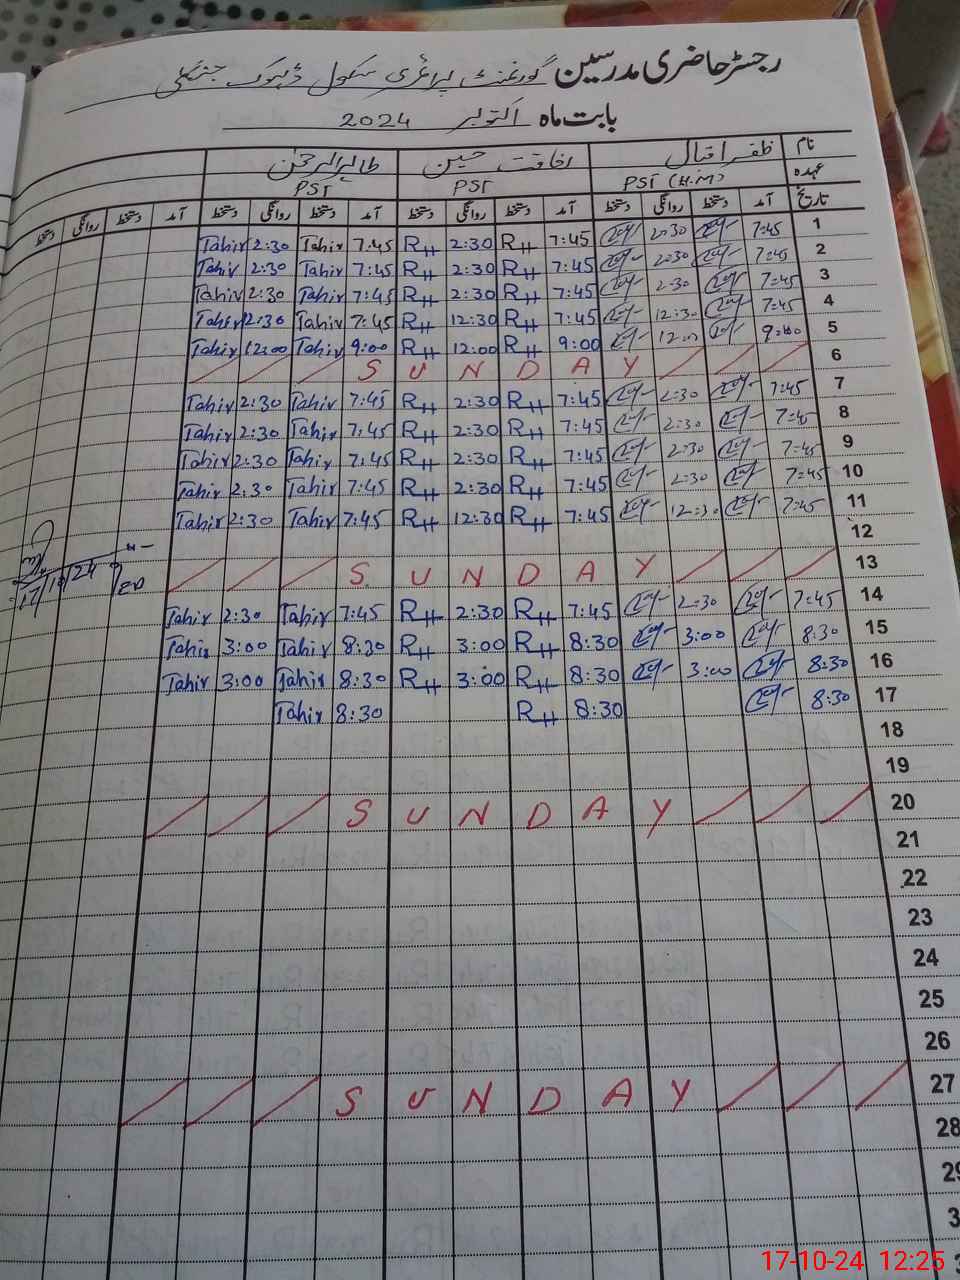 رجسٹر حاضری مدرسین گورنمنٹ پرائمری سکول ڈہوک
بابت ماہ اکتوبر 2024
نام ظفر اقبال رفاقت حسین طاہر الرحمٰن
عہدہ PST (H.M) PST PST
تاریخ آمد دستخط روانگی دستخط آمد دستخط روانگی دستخط آمد دستخط روانگی دستخط آمد دستخط روانگی دستخط
1 7:45 2:30 7:45 RH 2:30 RH 7:45 Tahir 2:30 Tahir
2 7:45 2:30 7:45 RH 2:30 RH 7:45 Tahir 2:30 Tahir
3 7:45 2:30 7:45 RH 2:30 RH 7:45 Tahir 2:30 Tahir
4 7:45 12:30 7:45 RH 12:30 RH 7:45 Tahir 12:30 Tahir
5 9:00 12:00 9:00 RH 12:00 RH 9:00 Tahir 12:00 Tahir
6 SUNDAY
7 7:45 2:30 7:45 RH 2:30 RH 7:45 Tahir 2:30 Tahir
8 7:45 2:30 7:45 RH 2:30 RH 7:45 Tahir 2:30 Tahir
9 7:45 2:30 7:45 RH 2:30 RH 7:45 Tahir 2:30 Tahir
10 7:45 2:30 7:45 RH 2:30 RH 7:45 Tahir 2:30 Tahir
11 7:45 12:30 7:45 RH 12:30 RH 7:45 Tahir 2:30 Tahir
12
13 SUNDAY
14 7:45 2:30 7:45 RH 2:30 RH 7:45 Tahir 2:30 Tahir
15 8:30 3:00 8:30 RH 3:00 RH 8:30 Tahir 3:00 Tahir
16 8:30 3:00 8:30 RH 3:00 RH 8:30 Tahir 3:00 Tahir
17 8:30 8:30 RH 8:30 Tahir
17/10/24
18
19
20 SUNDAY
21
22
23
24
25
26
27 SUNDAY
28
17-10-24 12:25